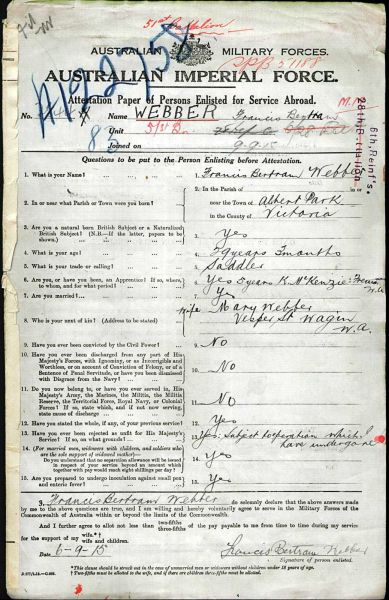 51st Battalion
AUSTRALIAN MILITARY FORCES.
AUSTRALIAN IMPERIAL FORCE.
Attestation Paper of Persons Enlisted for Service Abroad.
No. Name WEBBER Francis Bertram
Unit 51st Bn.
Joined on 9-9-15
6th Reinf's.
28th Battalion.
Questions to be put to the Person Enlisting before Attestation.
1. What is your Name? 1. Francis Bertram Webber
2. In or near what Parish or Town were you born? 2. In the Parish of
near the Town of Albert Park
in the County of Victoria
3. Are you a natural born British Subject or a Naturalized
British Subject? (N.B.—If the latter, papers to be
shown). 3. Yes
4. What is your age? 4. 29 years 3 months
5. What is your trade or calling? 5. Saddler
6. Are you, or have you been, an Apprentice? If so, where,
to whom, and for what period? 6. Yes 5 years K. McKenzie W.A.
7. Are you married? 7. Yes
8. Who is your next of kin? (Address to be stated) Wife Mary Webber
Vesper St Wagin
W.A.
9. Have you ever been convicted by the Civil Power? 9. No
10. Have you ever been discharged from any part of His
Majesty's Forces, with Ignominy, or as Incorrigible
and Worthless, or on account of Conviction of Felony, or of a
Sentence of Penal Servitude, or have you been dismissed
with Disgrace from the Navy? 10. No
11. Do you now belong to, or have you ever served in, His
Majesty's Army, the Marines, the Militia, the Militia
Reserve, the Territorial Force, Royal Navy, or Colonial
Forces? If so, state which, and if not now serving,
state cause of discharge 11. No
12. Have you stated the whole, if any, of your previous service? 12. Yes
13. Have you ever been rejected as unfit for His Majesty's
Service? If so, on what grounds? 13. Yes. Subject to operation which I
have undergone
14. (For married men, widowers with children, and soldiers who
are the sole support of widowed mother)—
Do you understand that no separation allowance will be issued
in respect of your service beyond an amount which
together with pay would reach eight shillings per day? 14. Yes
15. Are you prepared to undergo inoculation against small pox
and enteric fever? 15. Yes
I, Francis Bertram Webber do solemnly declare that the above answers made
by me to the above questions are true, and I am willing and hereby voluntarily agree to serve in the Military Forces of the
Commonwealth of Australia within or beyond the limits of the Commonwealth.
And I further agree to allot not less than two-fifths three-fifths of the pay payable to me from time to time during my service
for the support of my wife.*†
wife and children.
Date 6-9-15 Francis Bertram Webber
Signature of person enlisted.
*This clause should be struck out in the case of unmarried men or widowers without children under 18 years of age.
†Two-fifths must be allotted to the wife, and if there are children three-fifths must be allotted.